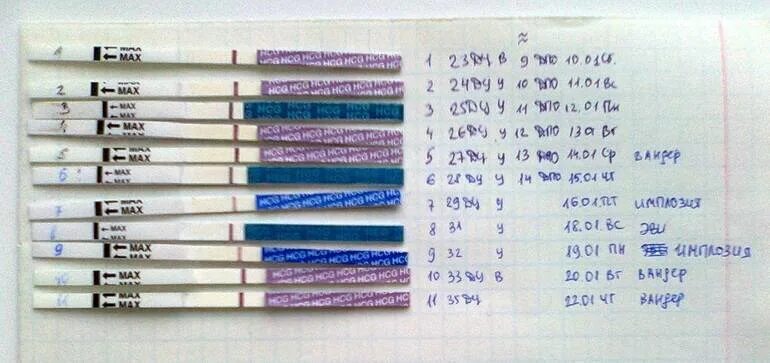 ≈
1 MAX HCG HCG HCG HCG HCG HCG 1 23ДЦ В 9 ДПО 10.01 Сб.
2 MAX HCG HCG HCG HCG HCG 2 24ДЦ У 10 ДПО 11.01 ВС
3 MAX HCG HCG HCG HCG 3 25ДЦ У 11 ДПО 12.01 ПН
MAX HCG HCG HCG HCG HCG 4 26ДЦ У 12 ДПО 13.01 ВТ
5 MAX HCG HCG HCG HCG HCG 5 27ДЦ У 13 ДПО 14.01 Ср ВАНДЕР
6 MAX 6 28ДЦ У 14 ДПО 15.01 ЧТ
7 MAX HCG HCG HCG HCG HCG 7 29ДЦ У 16.01 ПТ ИМПЛОЗИЯ
8 MAX 8 31 У 18.01 ВС ЭВИ
9 MAX HCG HCG HCG HCG HCG 9 32 У 19.01 ПН ИМПЛОЗИЯ
10 MAX HCG HCG HCG HCG HCG 10 33ДЦ В 20.01 ВТ ВАНДЕР
11 MAX HCG HCG HCG HCG HCG 11 35ДЦ 22.01 ЧТ ВАНДЕР